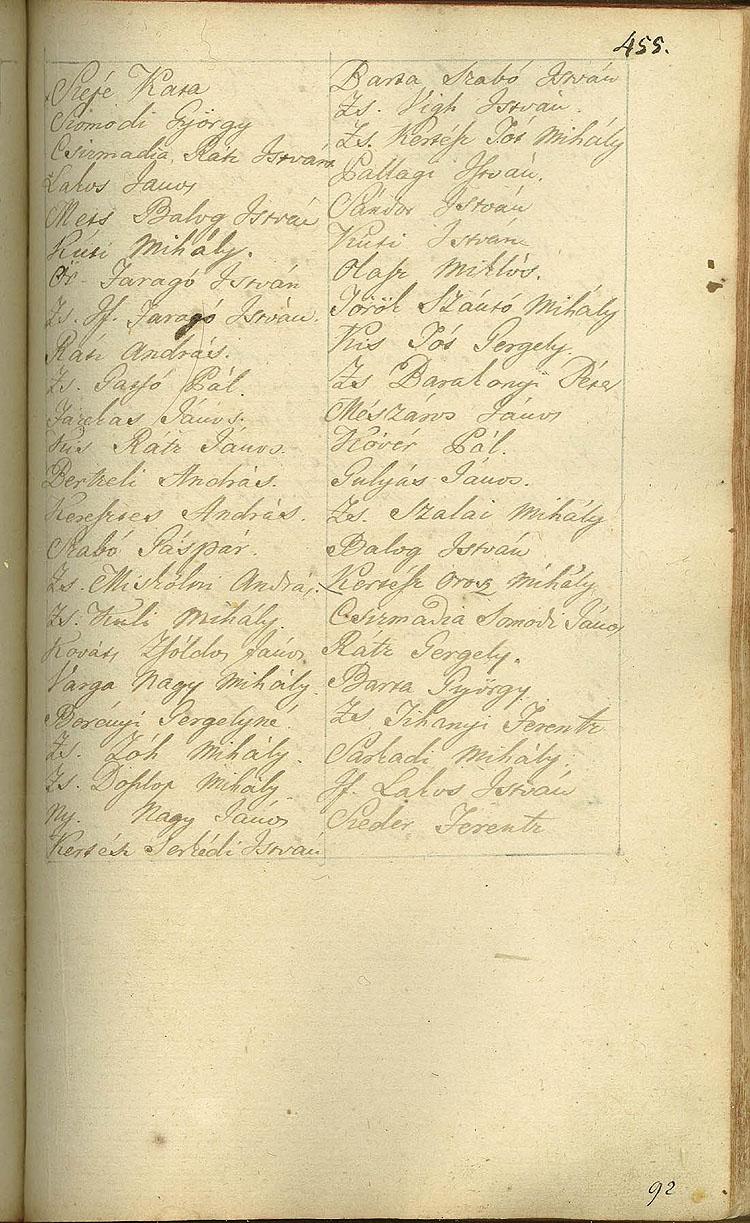 455.
Szejé Kata
Somodi György
Csizmadia Rátz István
Lakos János
Mets Balog István
Kuti Mihály.
Ör. Faragó István
Zs. If. Faragó István.
Rátz András.
Zs. Gassó Pál.
Farkas János.
Kis Rátz János.
Berkeli András.
Keresztes András.
Szabó Gáspár.
Zs. Miskólezi András.
Zs. Kuli Mihály.
Kováts Zsóldos János
Varga Nagy Mihály.
Berényi Gergelyné.
Zs. Zóh Mihály.
Zs. Doszlop Mihály
Ny. Nagy János
Kertész Serkédi István
Barta Szabó István
Zs. Vigh István.
Zs. Kertész Tót Mihály
Pallagi István.
Sándor István
Kuti István
Olasz Miklós.
Töröl Szántó Mihály
Kis Tót Gergely.
Zs Barakonyi Péter
Mészáros János
Kövér Pál.
Gulyás János.
Zs. Szalai Mihály
Balog István
Kertész Orosz Mihály
Csizmadia Somodi János
Rátz Gergely.
Barta György
Zs. Tihanyi Ferentz
Sarkadi Mihály.
If. Lakos István
Szeder Ferentz
92